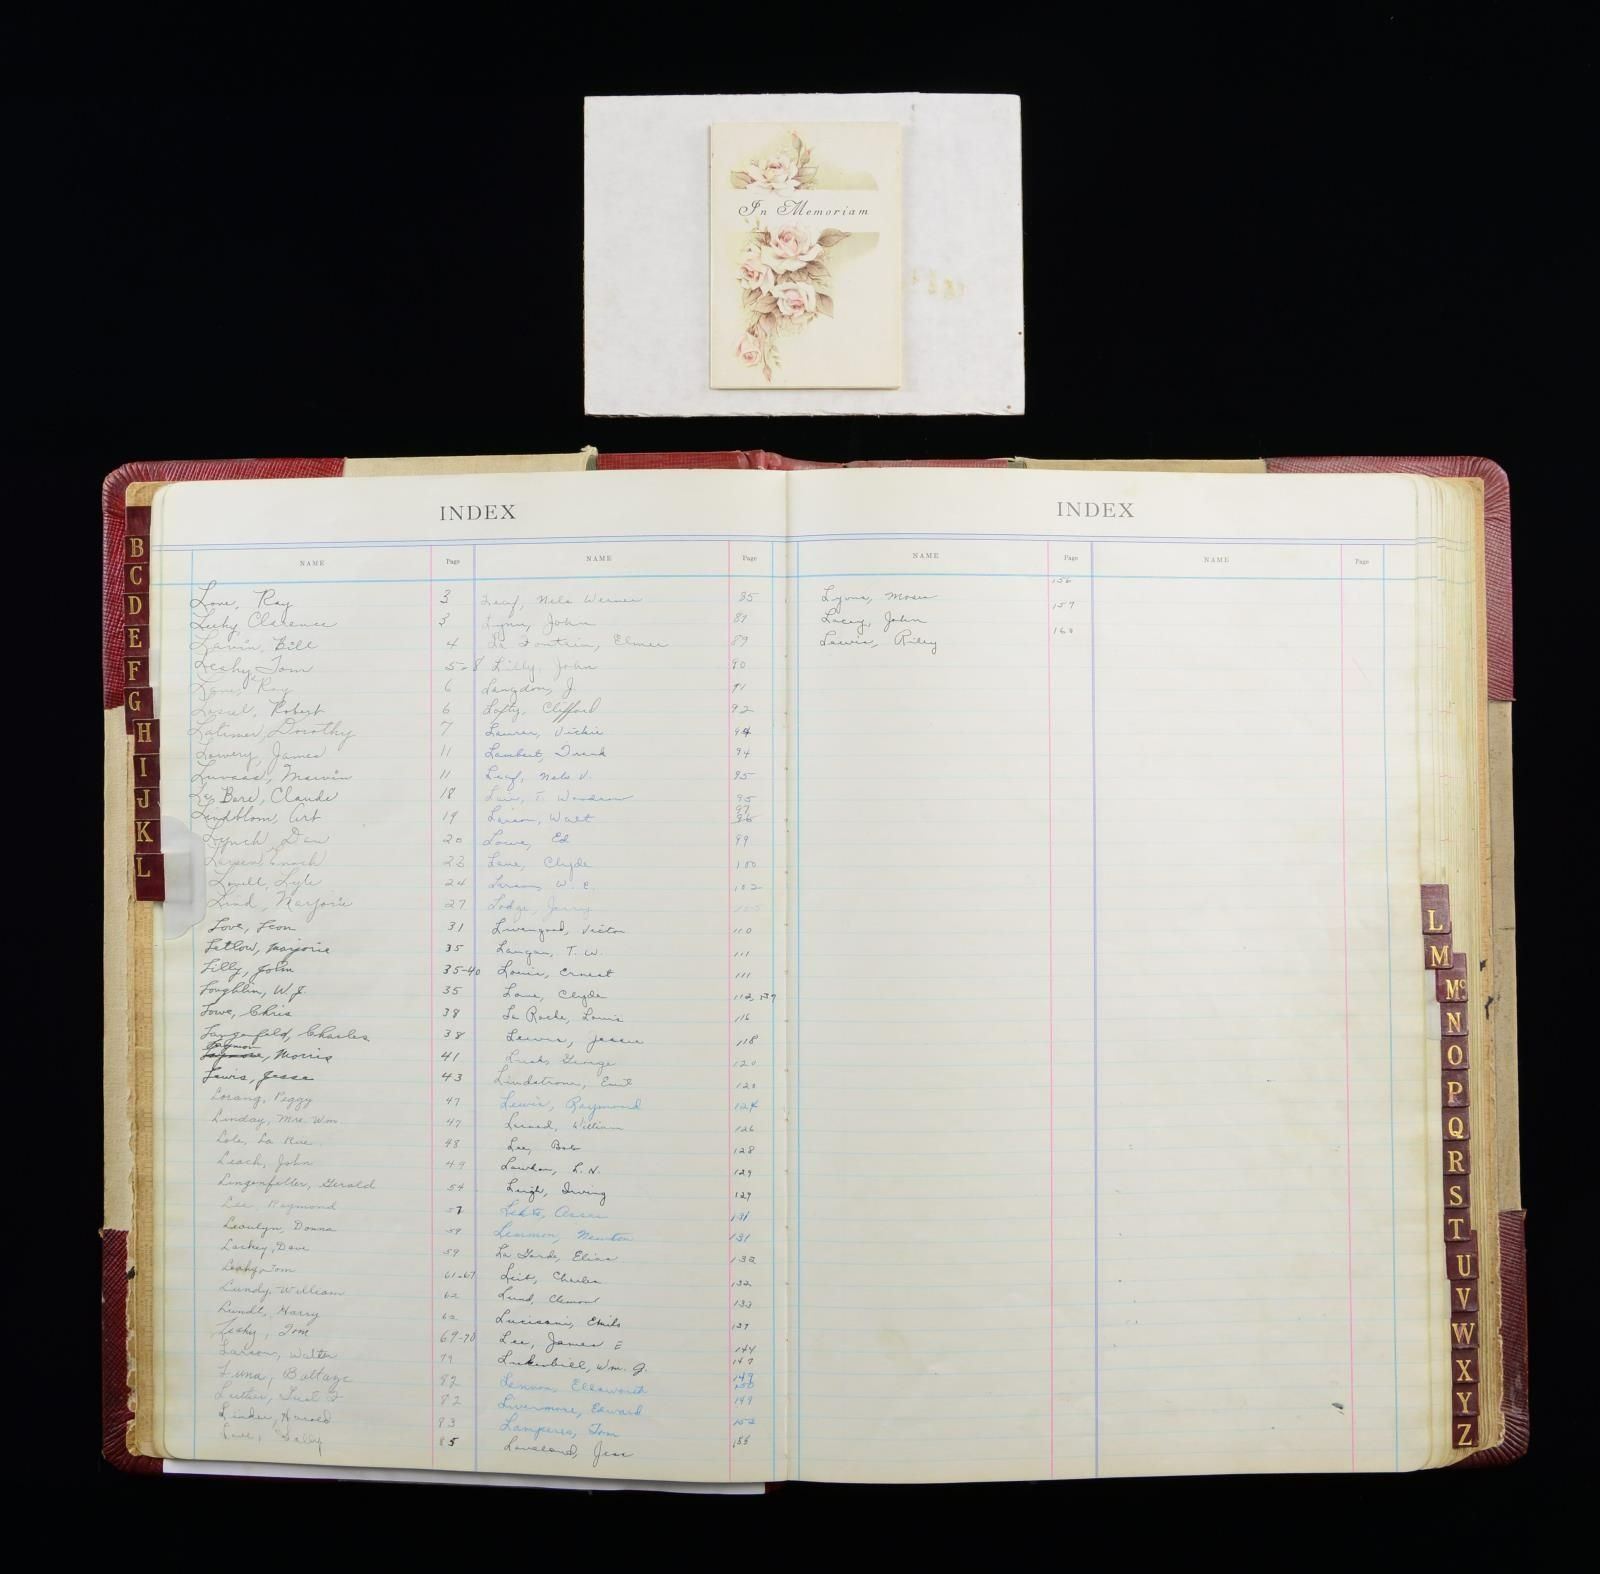 In Memoriam
INDEX
NAME Page NAME Page
Love, Ray 3
Leahy, Clarence 3
Lavin, Bill 4
Leahy, Tom 5-8
Lane, Ray 6
Lassel, Robert 6
Latimer, Dorothy 7
Lowery, James 11
Luvaas, Marvin 11
Le Bere, Claude 18
Lindblom, Art 19
Lynch, Dan 20
Larsen, Enoch 23
Lovell, Lyle 24
Lind, Marjorie 27
Love, Leon 31
Letlow, Marjorie 35
Lilly, John 35-40
Loughlin, W. J. 35
Lowe, Chris 38
Langenfeld, Charles 38
Laymon, Morris 41
Lewis, Jesse 43
Lorang, Peggy 47
Linday, Mrs. Wm. 47
Lole, La Rue 48
Leach, John 49
Lingenfelter, Gerald 54
Lee, Raymond 57
Donna 59
Lackey, Dave 59
Leahy, Tom 61-67
Lundy, William 62
Lundt, Harry 62
Leahy, Tom 69-70
Larson, Walter 79
Luna, Battazc 82
Luther, 82
Linder, Harold 83
Love, Sally 85
Leaf, Nels Werner 85
Lynn, John 87
La Fontain, Elmer 89
Lilly, John 90
Langdon, J. 91
Lofty, Clifford 92
Laurer, Vickie 94
Lambert, Frank 94
Leaf, Nels V. 95
T. Woodrow 95
Larson, Walt 97
Lowe, Ed 99
Lane, Clyde 100
Larson, W. E. 102
Lodge, Jerry 105
Livengood, Victor 110
Langan, T. W. 111
Louis, Ernest 111
Lane, Clyde 112, 137
La Roche, Louis 116
Lewis, Jessie 118
Lusk, George 120
Lindstrom, Emil 120
Lewis, Raymond 124
William 126
Lee, Bob 128
Lawhon, L. N. 129
Leigh, Irving 129
131
Learmon, Newton 131
La Garde, Elias 132
Leit, Charles 132
Lund, Clement 133
Lucisani, Emilo 137
Lee, James E 144
Lukenbill, Wm. J. 147
Lennon, Ellsworth 149
Livermore, Edward 149
Lamperes, Tom 152
Loveland, Jess 155
INDEX
NAME Page NAME Page
Lyons, Moses 156
Lacey, John 157
Lewis, Riley 160
B
C
D
E
F
G
H
I
J
K
L
L
M
Mc
N
O
P
Q
R
S
T
U
V
W
X
Y
Z